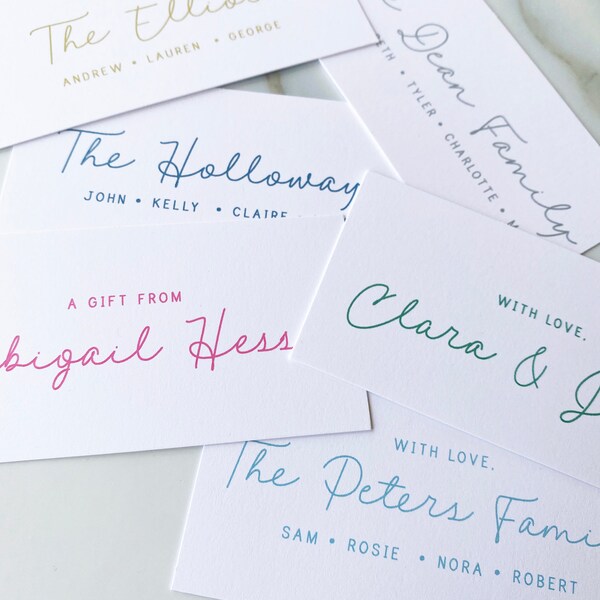 The Ellio
ANDREW • LAUREN • GEORGE
Dean Family
TYLER • CHARLOTTE •
The Holloway
JOHN • KELLY • CLAIRE
A GIFT FROM
bigail Hess
WITH LOVE,
Clara & D
WITH LOVE,
The Peters Fami
SAM • ROSIE • NORA • ROBERT